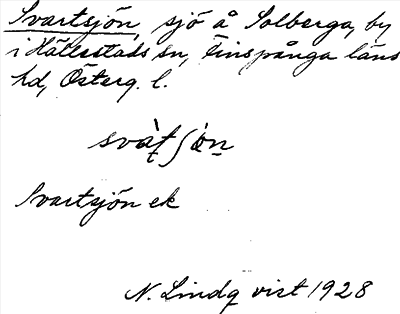 Svartsjön, sjö å Solberga, by
i Hällestads sn, Finspånga läns
hd, Österg. l.
Svartsjön ek
N. Lindq vist 1928